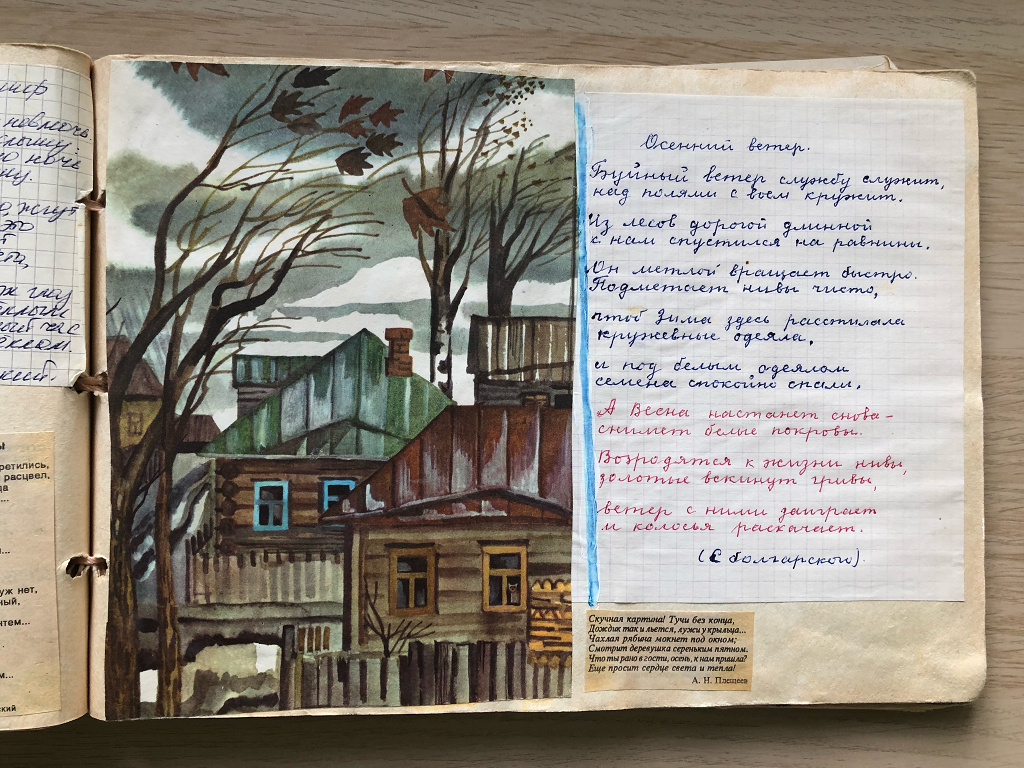 невмочь
крышу
ну.
жгут
это
глаз
час
ы
ретились,
расцвел,
да
...
а...
уж нет,
ный,
нтем...
м...
ский
Осенний ветер.
Буйный ветер службу служит,
над полями с воем кружит.
Из лесов дорогой длинной
к нам спустился на равнины.
Он метлой вращает быстро.
Подметает нивы чисто,
чтоб Зима здесь расстилала
кружевные одеяла,
и под белым одеялом
семена спокойно спали.
А Весна настанет снова-
снимет белые покровы.
Возродятся к жизни нивы,
золотые вскинут гривы,
ветер с ними заиграет
и колосья раскачает.
(С болгарского)
Скучная картина! Тучи без конца,
Дождик так и льется, лужи у крыльца...
Чахлая рябина мокнет под окном;
Смотрит деревушка сереньким пятном.
Что ты рано в гости, осень, к нам пришла?
Еще просит сердце света и тепла!
А. Н. Плещеев